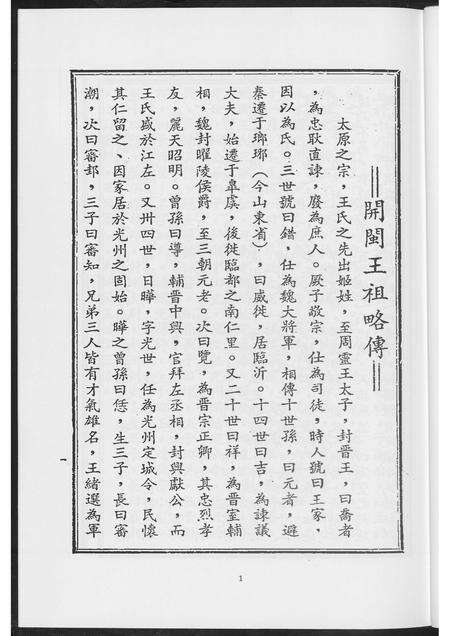 開閩王祖略傳
太原之宗，王氏之先出姬姓，至周靈王太子，封晉王，曰喬者
，為忠耿直諫，廢為庶人。厥子敬宗，仕為司徒，時人號曰王家，
因以為氏。三世號曰錯，仕為魏大將軍，相傳十世孫，曰元者，避
秦遷于瑯琊（今山東省），曰威徙，居臨沂。十四世曰吉，為諫議
大夫，始遷于皐虞，後徙臨都之南仁里。又二十世曰祥，為晉室輔
相，魏封曜陵侯爵，至三朝元老。次曰覽，為晉宗正卿，其忠烈孝
友，麗天昭明。曾孫曰導，輔晉中興，官拜左丞相，封興獻公，而
王氏盛於江左。又卅四世，日曄，字光世，任為光州定城令，民懷
其仁留之、因家居於光州之固始。曄之曾孫曰恁，生三子，長曰審
潮，次曰審邽，三子曰審知，兄弟三人皆有才氣雄名，王緒選為軍
一
1